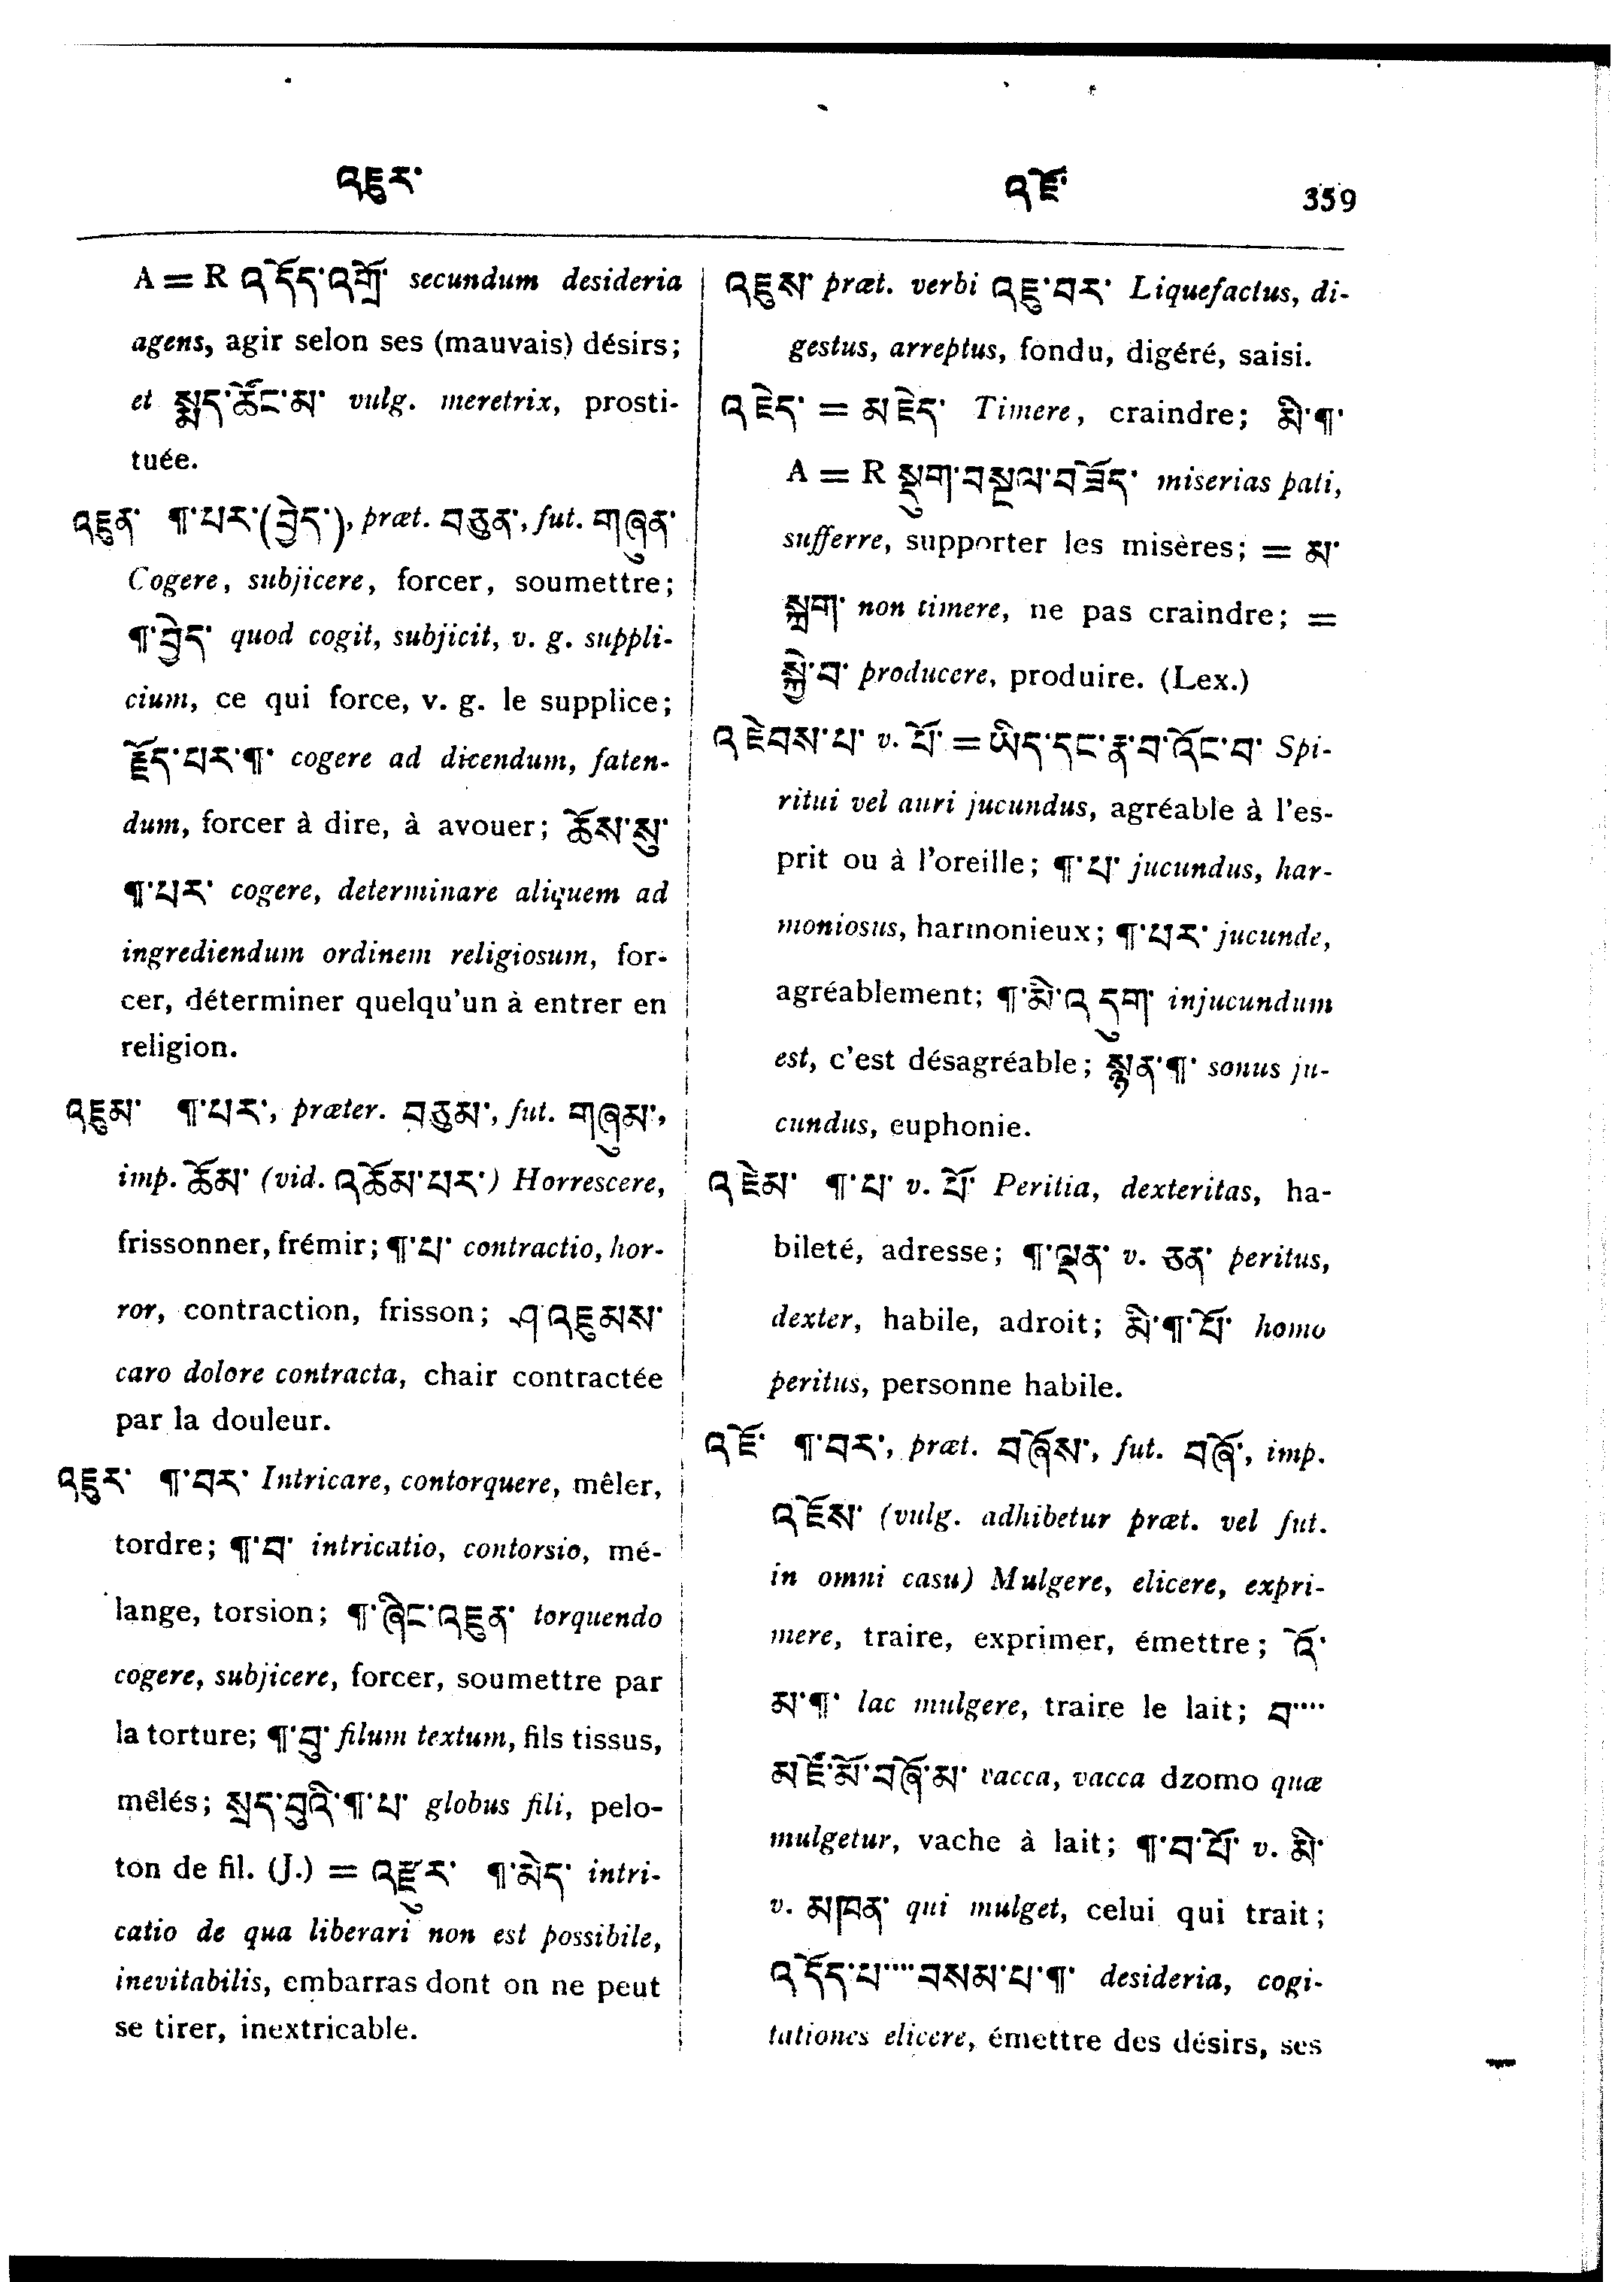 འཇུར་
འཇོ་
359
A = R འདོད་འགྲོ་ secundum desideria
agens, agir selon ses (mauvais) désirs;
et སྨད་ཚོང་མ་ vulg. meretrix, prosti-
tuée.
འཇུན་ ¶་པར་(བྱེད་), præt. བཅུན་, fut. གཞུན་
Cogere, subjicere, forcer, soumettre;
¶་བྱེད་ quod cogit, subjicit, v. g. suppli-
cium, ce qui force, v. g. le supplice;
རྗོད་པར་¶་ cogere ad dicendum, faten-
dum, forcer à dire, à avouer; ཆོས་སུ་
¶་པར་ cogere, determinare aliquem ad
ingrediendum ordinem religiosum, for-
cer, déterminer quelqu'un à entrer en
religion.
འཇུམ་ ¶་པར་, præter. བཅུམ་, fut. གཞུམ་,
imp. ཆོམ་ (vid. འཆོམ་པར་) Horrescere,
frissonner, frémir; ¶་པ་ contractio, hor-
ror, contraction, frisson; ཤ་འཇུམས་
caro dolore contracta, chair contractée
par la douleur.
འཇུར་ ¶་བར་ Intricare, contorquere, mêler,
tordre; ¶་བ་ intricatio, contorsio, mé-
lange, torsion; ¶་ཞིང་འཇུན་ torquendo
cogere, subjicere, forcer, soumettre par
la torture; ¶་བུ་ filum textum, fils tissus,
mêlés; སྲད་བུའི་¶་པ་ globus fili, pelo-
ton de fil. (J.) = འཛུར་ ¶་མེད་ intri-
catio de qua liberari non est possibile,
inevitabilis, embarras dont on ne peut
se tirer, inextricable.
འཇུས་ præt. verbi འཇུ་བར་ Liquefactus, di-
gestus, arreptus, fondu, digéré, saisi.
འཇེད་ = མཇེད་ Timere, craindre; མི་¶་
A = R སྡུག་བསྔལ་བཟོད་ miserias pati,
sufferre, supporter les misères; = མ་
སྐྲག་ non timere, ne pas craindre; =
སྐྱེ་བ་ producere, produire. (Lex.)
འཇེབས་པ་ v. པོ་ = ཡིད་དང་རྣ་བ་འོང་བ་ Spi-
ritui vel auri jucundus, agréable à l'es-
prit ou à l'oreille; ¶་པ་ jucundus, har-
moniosus, harmonieux; ¶་པར་ jucunde,
agréablement; ¶་མི་འདུག་ injucundum
est, c'est désagréable; སྙན་¶་ sonus ju-
cundus, euphonie.
འཇེམ་ ¶་པ་ v. པོ་ Peritia, dexteritas, ha-
bileté, adresse; ¶་ལྡན་ v. ཅན་ peritus,
dexter, habile, adroit; མི་¶་པོ་ homo
peritus, personne habile.
འཇོ་ ¶་བར་, præt. བཞོས་, fut. བཞོ་, imp.
འཇོས་ (vulg. adhibetur præt. vel fut.
in omni casu) Mulgere, elicere, expri-
mere, traire, exprimer, émettre; འོ་
མ་¶་ lac mulgere, traire le lait; བ་····
མཛོ་མོ་བཞོ་མ་ vacca, vacca dzomo quæ
mulgetur, vache à lait; ¶་བ་པོ་ v. མི་
v. མཁན་ qui mulget, celui qui trait;
འདོད་པ་····བསམ་པ་¶་ desideria, cogi-
tationes elicere, émettre des désirs, ses